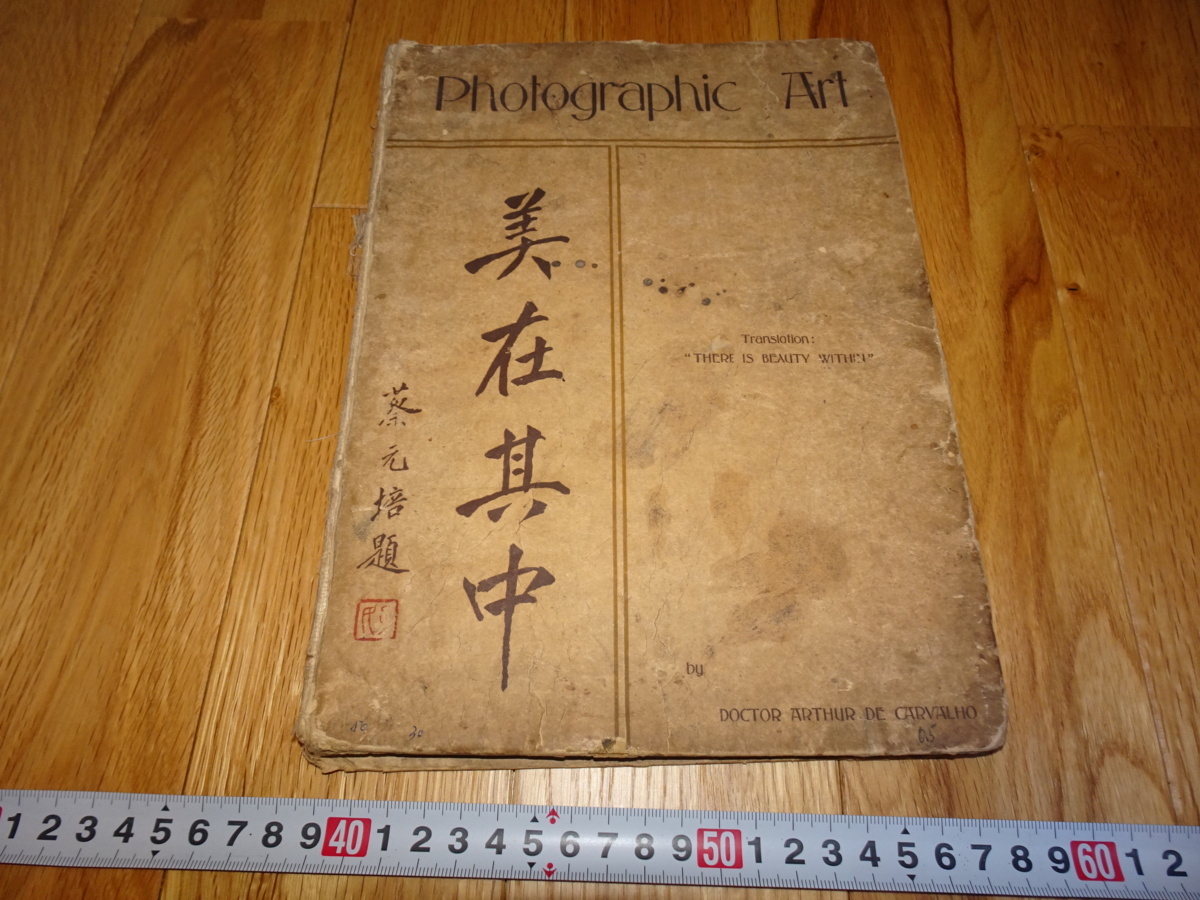 Photographic Art
美在其中
蔡元培題
Translation:
"THERE IS BEAUTY WITHIN"
by
DOCTOR ARTHUR DE CARVALHO
30
05
1 2 3 4 5 6 7 8 9 40 1 2 3 4 5 6 7 8 9 50 1 2 3 4 5 6 7 8 9 60 1 2